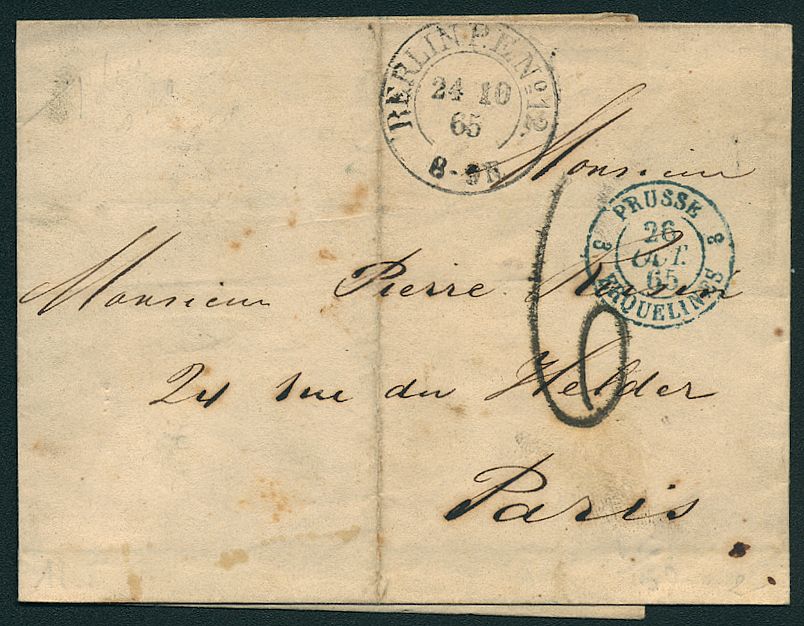 BERLIN P.E. No 12.
24 10
65
8-9 N
Monsieur
PRUSSE
3 26 3
OCT.
65
ERQUELINES
Monsieur Pierre
24 rue du Helder
6
Paris